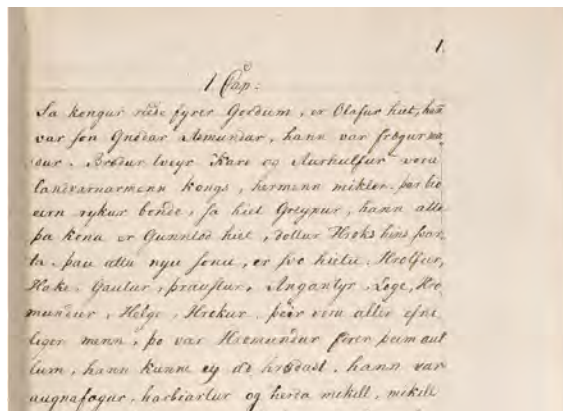 1.
1 Cap:
Sa kongur riede fyrer Gördum, er Olafur hiet, hañ
var son Gnodar Asmundar, hann var frægur ma
dur. Brædur tveyr Kare og Aurnulfur voru
landvarnarmenn kongs, hermenn mikler. þar bio
eirn rykur bonde, sa hiet Greypur, hann atte
þa konu er Gunnlod hiet, dotter Hroks hins svar,
ta. þau attu nyu sonu, er svo hietu: Hrolfur,
Hake, Gautur, þraustur, Angantyr, Loge, Hro
mundur, Helge, Hrokur. þeir voru aller efne,
leger menn, þo var Hromundur fyrer þeim aul
lum, hann kunne ey ad hrædast, hann var
augnafagur, harbiartur og herda mikell, mikell